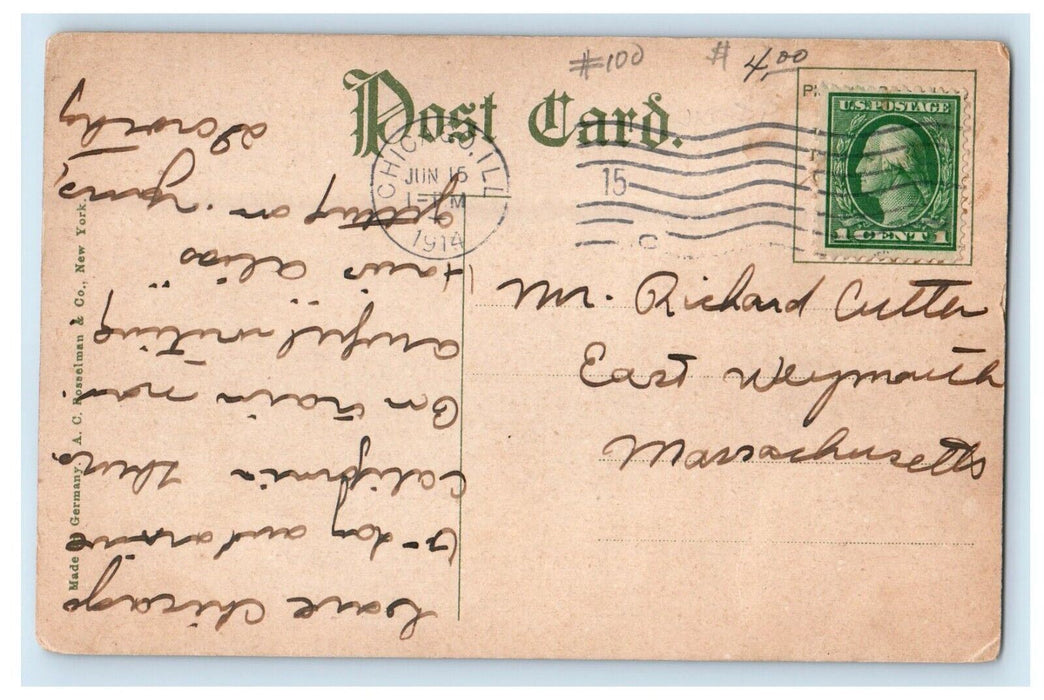 #100 $4.00
Post Card.
U.S. POSTAGE
1 CENT 1
CHICAGO, ILL
JUN 15
1914
15
Mr. Richard Cutter
East Weymouth
Massachusetts
Leave Chicago
to-day and arrive
California Thurs,
On train now
awful writing
getting on. Yours,
Dorothy
Made in Germany. A. C. Bosselman & Co., New York.